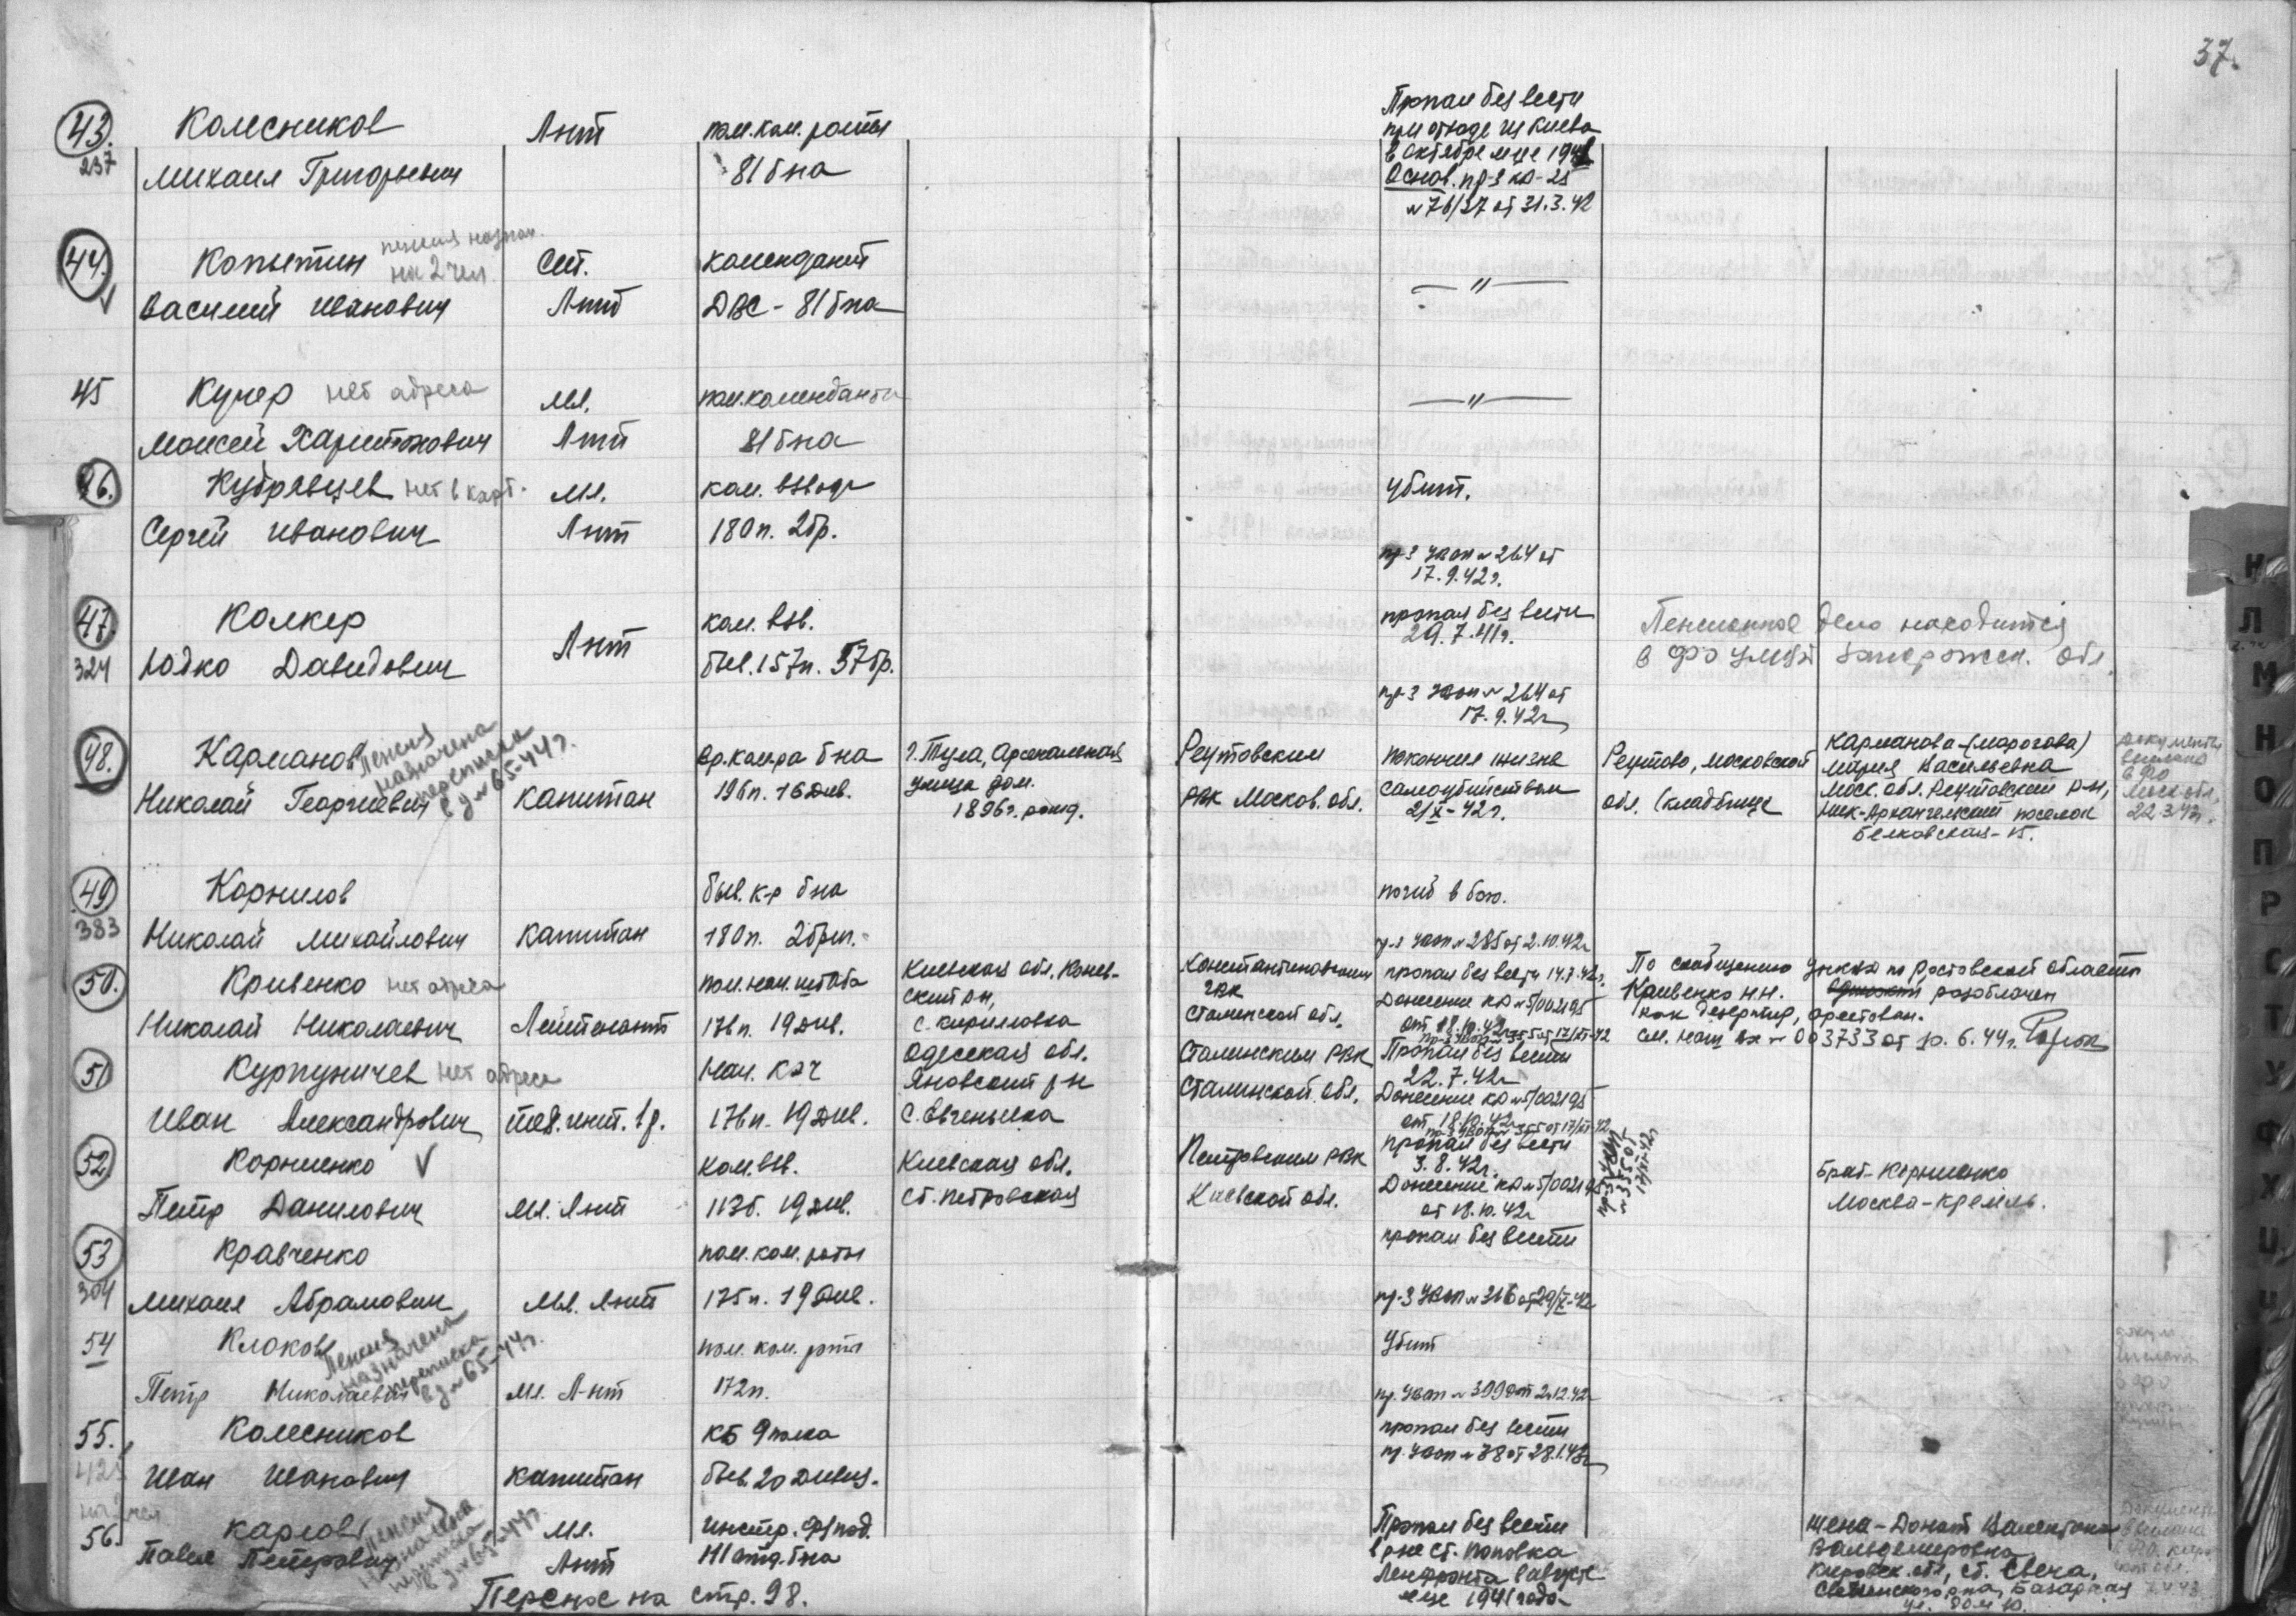 37.
43. Колесников Лнт пом. ком. роты Пропал без вести
при отходе из Киева
237 Михаил Григорьевич 81 б-на в октябре м-це 1941
Основ. пр-з КА-25
№ 76/37 от 31.3.42
44. Копытин пенсия назнач. на 2 чел. Ст. комендант
Василий Иванович Лнт ДВС - 81 б-на — " —
45 Кучер нет адреса Мл. пом. коменданта — " —
Моисей Харитонович Лнт 81 б-на
46. Кудрявцев нет в карт. Мл. ком. взвода Убит.
Сергей Иванович Лнт 180 п. 2 бр.
пр-з УВОП № 264 от
17.9.42 г.
47. Колкер Лнт ком. взв. пропал без вести
29.7.41 г. Пенсионное дело находится
324 Юдко Давидович быв. 157 п. 57 бр. в ФО УМВД Запорожск. обл.
пр-з УВОП № 264 от
17.9.42 г.
48. Карманов Пенсия назначена переписка в д № 65-44 г. Вр. ком-ра б-на г. Тула, Арсенальная Реутовским покончил жизнь Реутово, Московской Карманова-(Морогова)
Мария Васильевна
Николай Георгиевич Капитан 196 п. 16 див. улица дом. РВК Москов. обл. самоубийством обл. (кладбище Моск. обл. Реутовский р-н,
1896 г. рожд. 2/X-42 г. Ник-Архангельский поселок
Белковская-15.
документы высланы в ФО Моск обл. 22.3.43 г.
49 Корнилов быв. к-р б-на погиб в бою.
383 Николай Михайлович Капитан 180 п. 2 бриг. пр-з УВОП № 285 от 2.10.42 г.
50. Кривенко нет адреса пом. нач. штаба Киевская обл. Конев- Константиновским пропал без вести 14.7.42 г. По сообщению УНКВД по Ростовской области
ский р-н, ГВК Донесение КА № 5/002195 Кривенко Н.Н. разоблачен
Николай Николаевич Лейтенант 176 п. 19 див. с. Кирилловка Сталинской обл. от 18.10.42 г. как дезертир, арестован.
пр-з УВОП № 355 от 17/XI-42 см. наш вх № 003733 от 10.6.44 г.
51 Курпуничев нет адреса Нач. КЭЧ Одесская обл. Сталинским РВК Пропал без вести
Яновский р-н 22.7.42 г.
Иван Александрович тех. инт. 1 р. 176 п. 19 див. с. Евгеньевка Сталинской обл. Донесение КА № 5/002195
от 18.10.42 г.
пр-з УВОП № 355 от 17/XI-42
52 Корниенко V ком. взв. Киевская обл. Петровским РВК пропал без вести
3.8.42 г. Брат-Корниенко
Петр Данилович Мл. Лнт 113 б. 19 див. ст. Петровская Киевской обл. Донесение КА № 5/002195 Москва-Кремль.
от 18.10.42 г.
пр-з УВОП № 355 от 17/XI-42 г.
53 Кравченко пом. ком. роты пропал без вести
304 Михаил Абрамович Мл. Лнт 175 п. 19 див. пр-з УВОП № 316 от 29/X-42
54 Клоков Пенсия назначена переписка в д № 65-44 г. пом. ком. роты Убит
Петр Николаевич Мл. Лнт 172 п. пр. УВОП № 399 от 2.12.42
55. Колесников КБ 9 полка пропал без вести
пр. УВОП № 38 от 28.1.43 г.
Иван Иванович Капитан быв. 20 дивиз.
56. Карлов Пенсия назначена переписка в д № 65-44 г. Мл. инстр. Пропал без вести жена-Донат Валентина
Павел Петрович Лнт 41 отд. б-на в р-не ст. Поповка Вальдемировна
Ленфронта в августе Кировск. обл, ст. Свеча,
м-це 1941 года Свеченского р-на, Базарная
ул. дом 10.
Перенос на стр. 98.
Н
Л
М
Н
О
П
Р
С
Т
У
Ф
Х
Ц